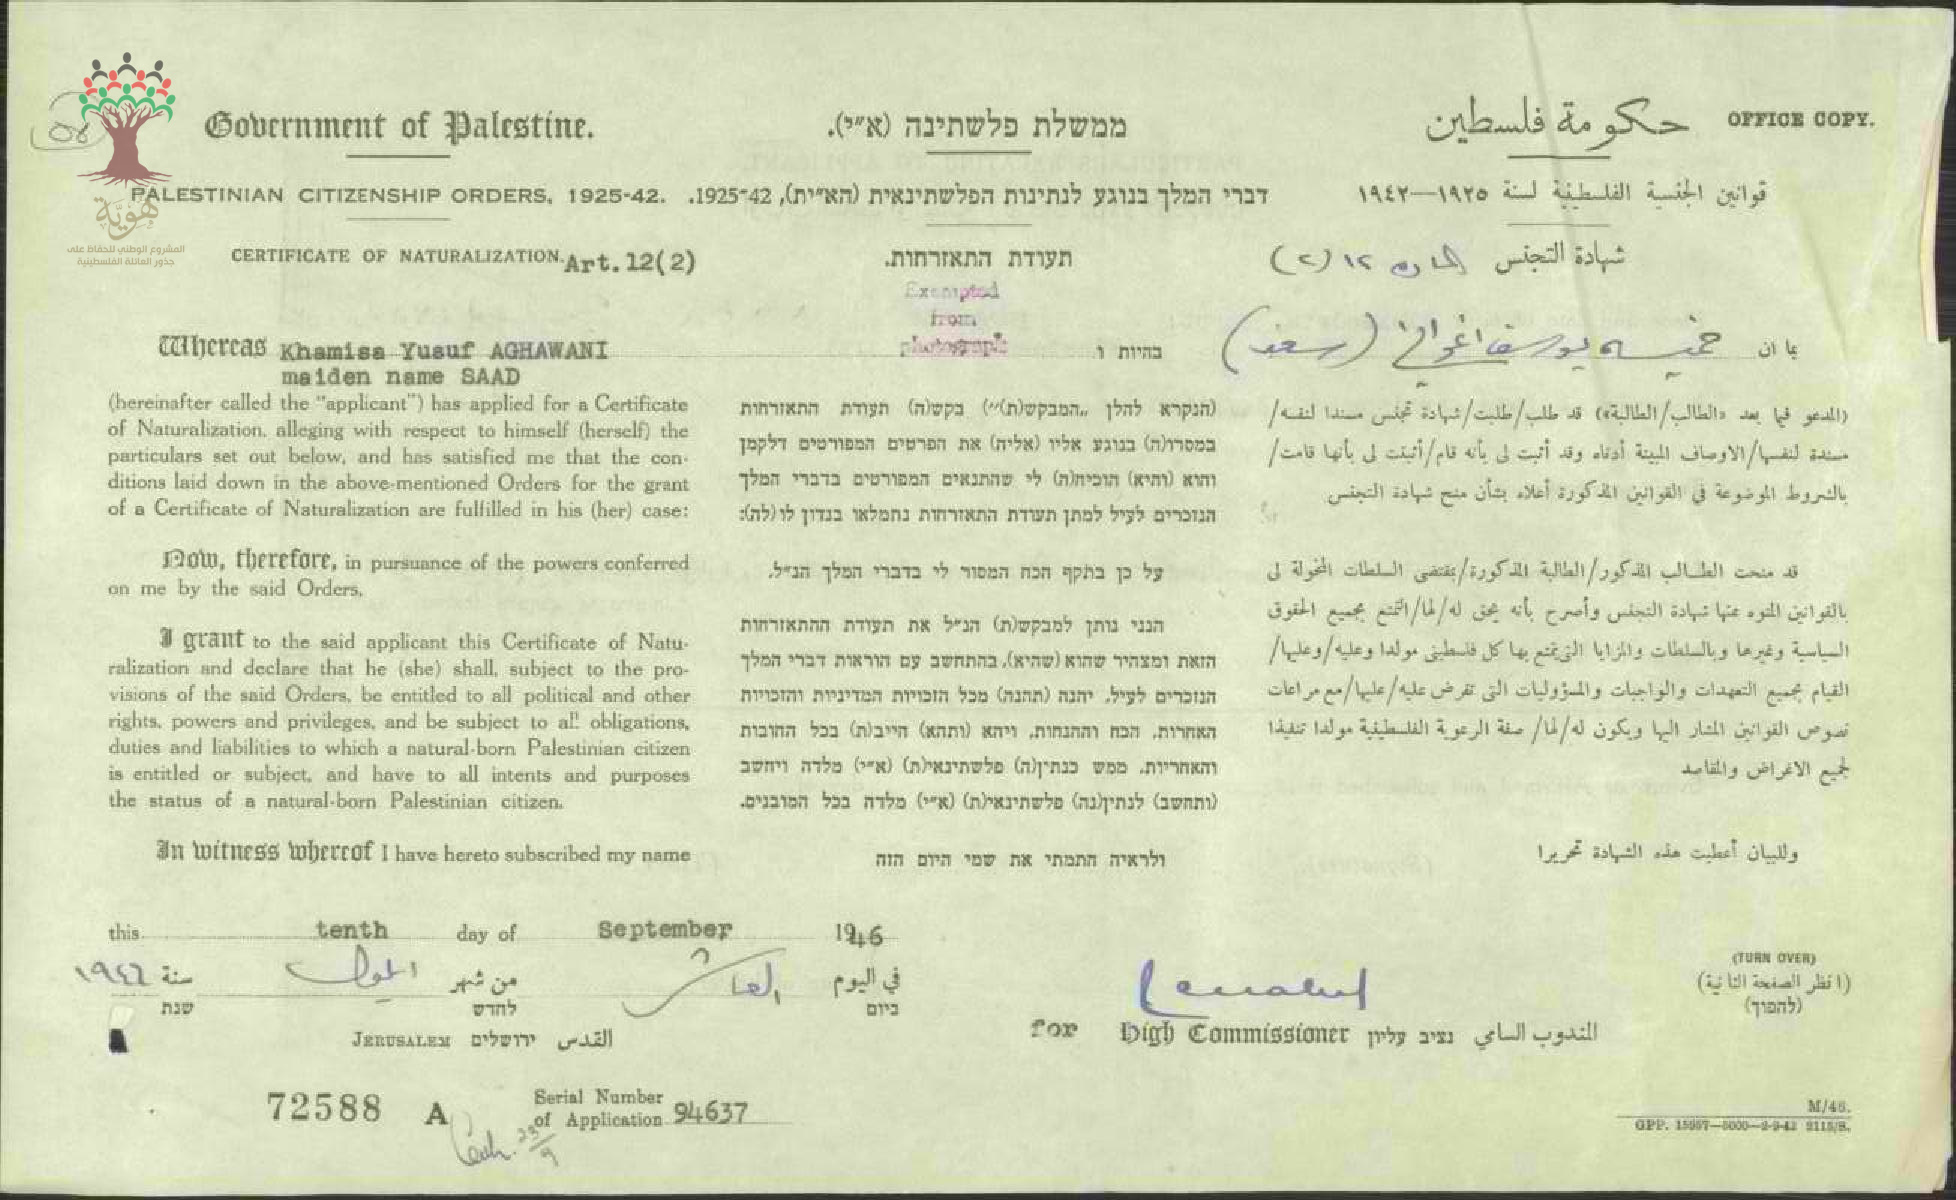 OFFICE COPY.
Government of Palestine.
ממשלת פלשתינה (א״י).
حكومة فلسطين
PALESTINIAN CITIZENSHIP ORDERS, 1925-42.
דברי המלך בנוגע לנתינות הפלשתינאית (הא״ית), 1925-42.
قوانين الجنسية الفلسطينية لسنة ١٩٢٥—١٩٤٢
هوية
المشروع الوطني للحفاظ على
جذور العائلة الفلسطينية
CERTIFICATE OF NATURALIZATION. Art.12(2)
תעודת התאזרחות.
شهادة التجنس المادة ١٢ (٢)
Exempted
from
Photograph
Whereas Khamisa Yusuf AGHAWANI
maiden name SAAD
(hereinafter called the "applicant") has applied for a Certificate
of Naturalization, alleging with respect to himself (herself) the
particulars set out below, and has satisfied me that the con-
ditions laid down in the above-mentioned Orders for the grant
of a Certificate of Naturalization are fulfilled in his (her) case:
Now, therefore, in pursuance of the powers conferred
on me by the said Orders,
I grant to the said applicant this Certificate of Natu-
ralization and declare that he (she) shall, subject to the pro-
visions of the said Orders, be entitled to all political and other
rights, powers and privileges, and be subject to all obligations,
duties and liabilities to which a natural-born Palestinian citizen
is entitled or subject, and have to all intents and purposes
the status of a natural-born Palestinian citizen.
In witness whereof I have hereto subscribed my name
בהיות ו
(הנקרא להלן „המבקש(ת)”) בקש(ה) תעודת התאזרחות
במסרו(ה) בנוגע אליו (אליה) את הפרטים המפורטים דלקמן
והוא (והיא) הוכיח(ה) לי שהתנאים המפורטים בדברי המלך
הנזכרים לעיל למתן תעודת התאזרחות נתמלאו בנדון לו (לה):
על כן בתקף הכח המסור לי בדברי המלך הנ״ל.
הנני נותן למבקש(ת) הנ״ל את תעודת ההתאזרחות
הזאת ומצהיר שהוא (שהיא), בהתחשב עם הוראות דברי המלך
הנזכרים לעיל, יהנה (תהנה) מכל הזכויות המדיניות והזכויות
האחרות, הכח וההנחות, ויהא (ותהא) חייב(ת) בכל החובות
והאחריות, ממש כנתין(ה) פלשתינאי(ת) (א״י) מלדה ויחשב
(ותחשב) לנתין(נה) פלשתינאי(ת) (א״י) מלדה בכל המובנים.
ולראיה חתמתי את שמי היום הזה
بما ان خميسه يوسف اغواني (سعد)
(المدعو فيما بعد «الطالب/الطالبة») قد طلب/طلبت/شهادة تجنس مسندا لنفسه/
مسندة لنفسها/الاوصاف المبينة أدناه وقد أثبت لي بأنه قام/أثبتت لي بأنها قامت/
بالشروط الموضوعة في القوانين المذكورة أعلاه بشأن منح شهادة التجنس
قد منحت الطالب المذكور/الطالبة المذكورة/بمقتضى السلطات المخولة لي
بالقوانين المنوه عنها شهادة التجنس وأصرح بأنه يحق له/لها/التمتع بجميع الحقوق
السياسية وغيرها وبالسلطات والمزايا التي يتمتع بها كل فلسطيني مولدا وعليه/وعليها/
القيام بجميع التعهدات والواجبات والمسؤوليات التي تفرض عليه/عليها/مع مراعات
نصوص القوانين المشار اليها ويكون له/لها/ صفة الرعوية الفلسطينية مولدا تنفيذا
لجميع الاغراض والمقاصد
وللبيان أعطيت هذه الشهادة تحريرا
this tenth day of September 1946
في اليوم العاشر من شهر ايلول سنة ١٩٤٦
ביום לחדש שנת
JERUSALEM ירושלים القدس
for High Commissioner נציב עליון المندوب السامي
(TURN OVER)
(انظر الصفحة الثانية)
(להפוך)
72588 A
Serial Number
of Application 94637
23/9
M/46.
GPP. 15957—5000—2-9-42 2115/S.